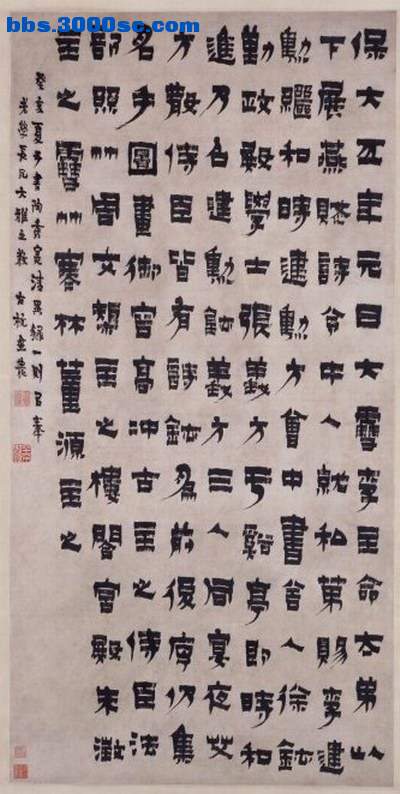 bbs.3000sc.com
保大五年元日大雪李主命太弟以
下展燕賦詩令中人就和第賜李建
勳繼和時建勳方會中書舍人徐鉉
勤政殿學士張義方亏谿亭即時和
進乃召建勳義方三人同宴夜艾
方散侍臣皆有詩鉉為前後序仍集
名手圖畫御容高冲古主之侍臣法
部竹周文主之樓閣宮殿朱澂
主之雪竹寒林董源主之
癸亥夏五書陶清異錄一則呂奉
學長兄大雅之教古杭金農